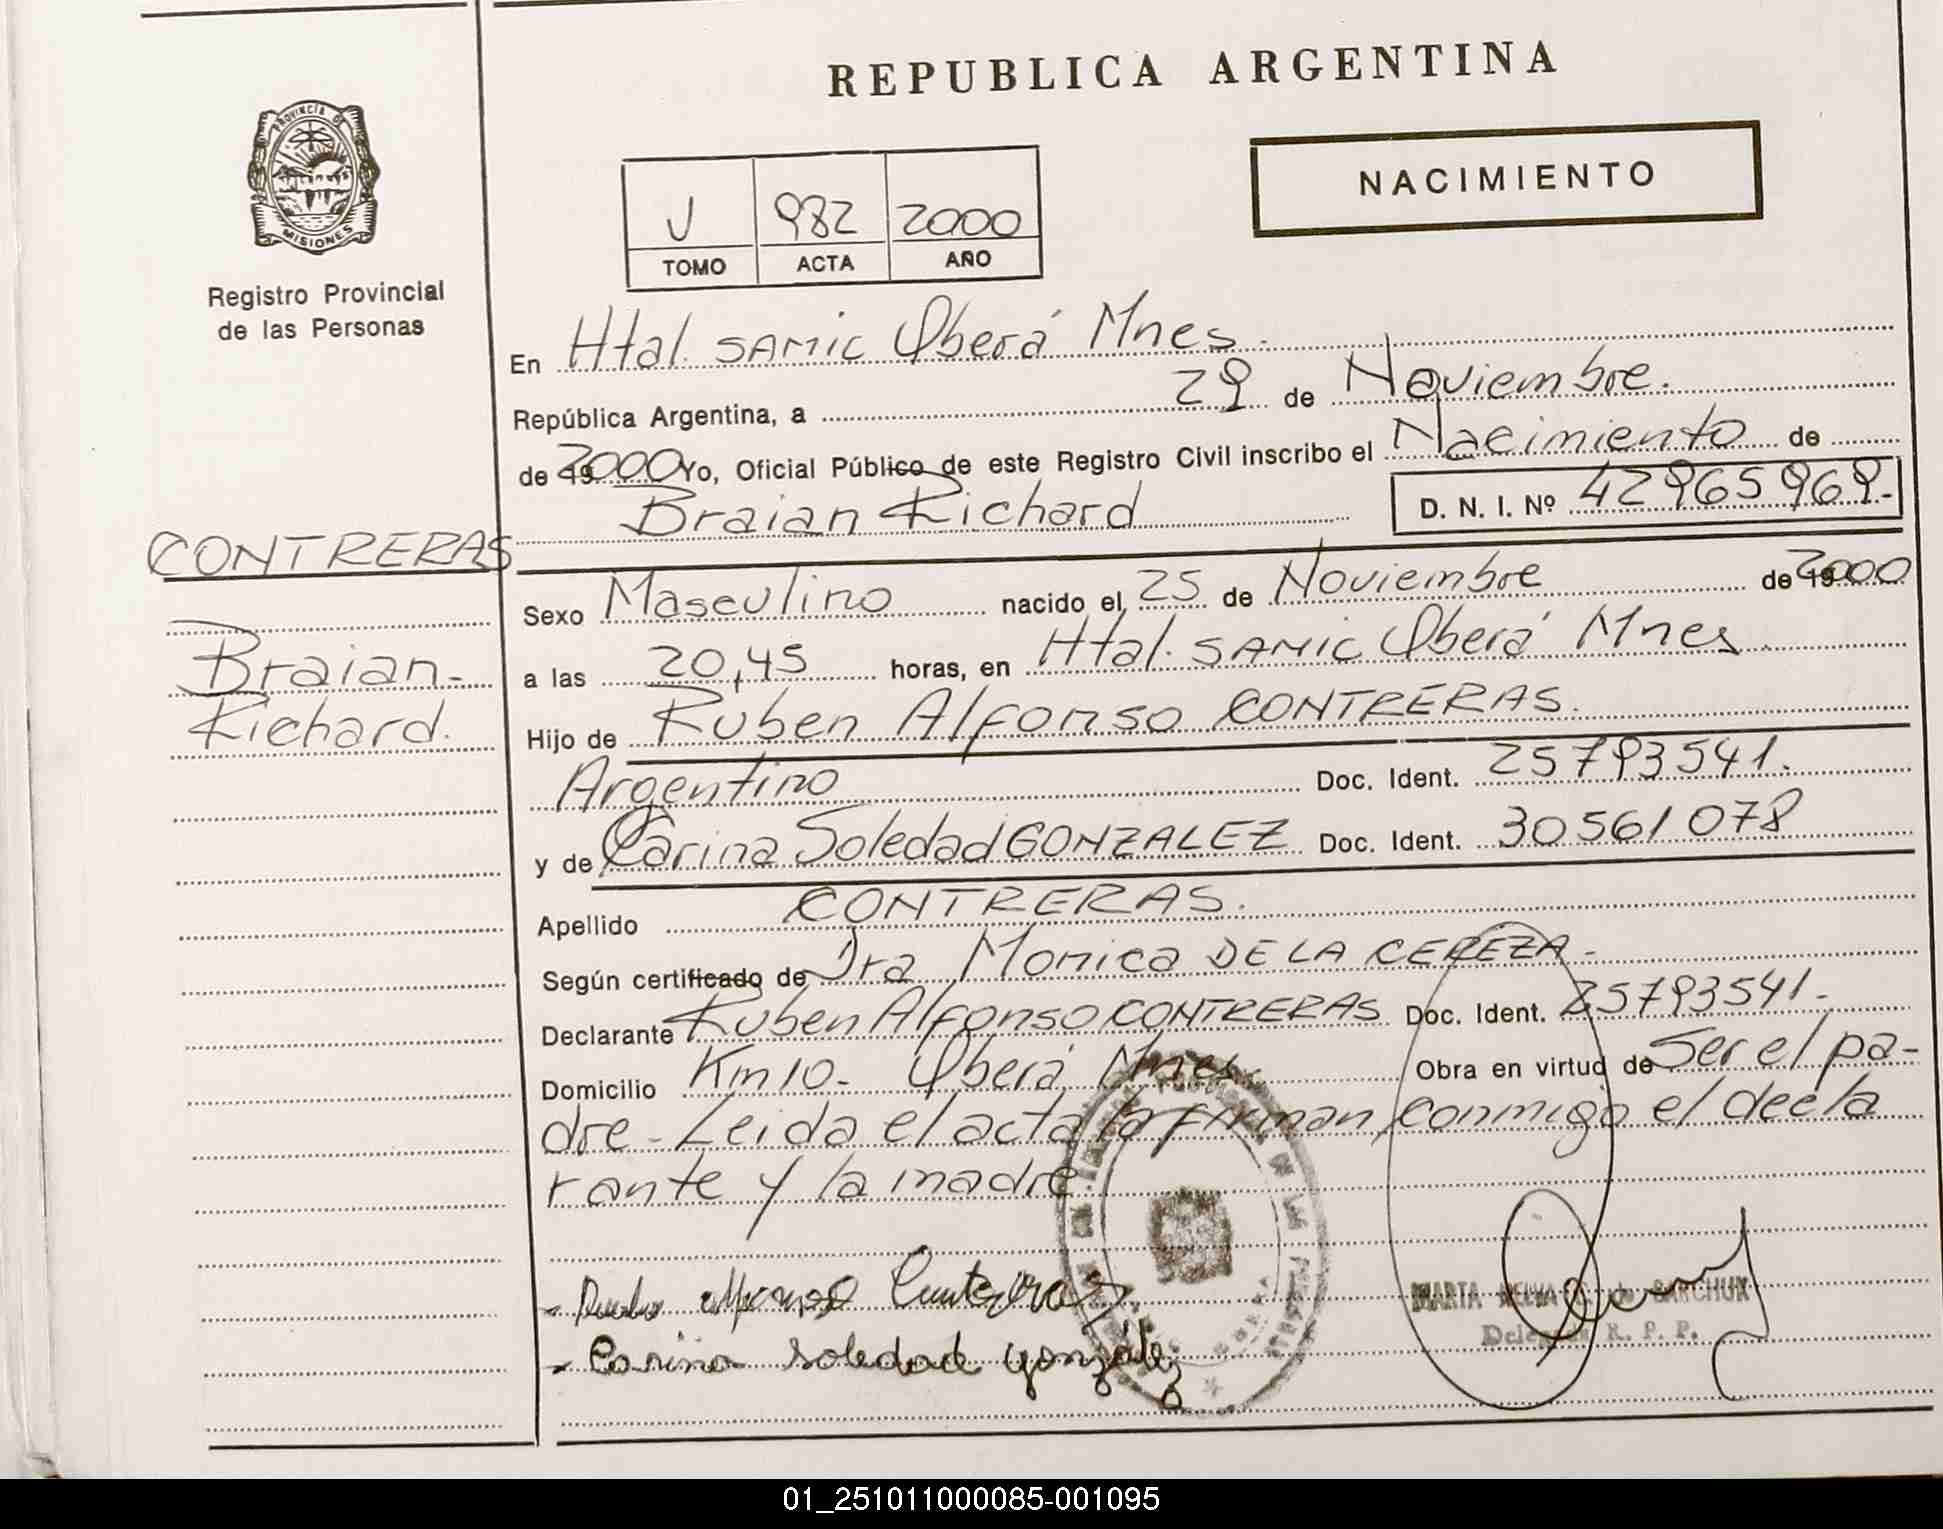 REPUBLICA ARGENTINA
PROVINCIA DE MISIONES
Registro Provincial
de las Personas
NACIMIENTO
J 982 2000
TOMO ACTA AÑO
En Htal. SAMIC Oberá Mnes.
República Argentina, a 29 de Noviembre.
de 2000 Yo, Oficial Público de este Registro Civil inscribo el Nacimiento de
Braian Richard D. N. I. Nº 42965969.-
CONTRERAS
Braian-
Richard.
Sexo Masculino nacido el 25 de Noviembre de 2000
a las 20,45 horas, en Htal. SAMIC Oberá Mnes.
Hijo de Ruben Alfonso CONTRERAS.
Argentino Doc. Ident. 25793541.
y de Carina Soledad GONZALEZ Doc. Ident. 30561078
Apellido CONTRERAS.
Según certificado de Dra Monica DE LA CEREZA.-
Declarante Ruben Alfonso CONTRERAS Doc. Ident. 25793541.-
Domicilio Km 10- Oberá Mnes. Obra en virtud de Ser el pa-
dre- Leida el acta la firman conmigo el decla
rante y la madre
- Alfonso Contreras
- Carina Soledad González
MARTA SARCHUK
Delegada R. P. P.
01_251011000085-001095